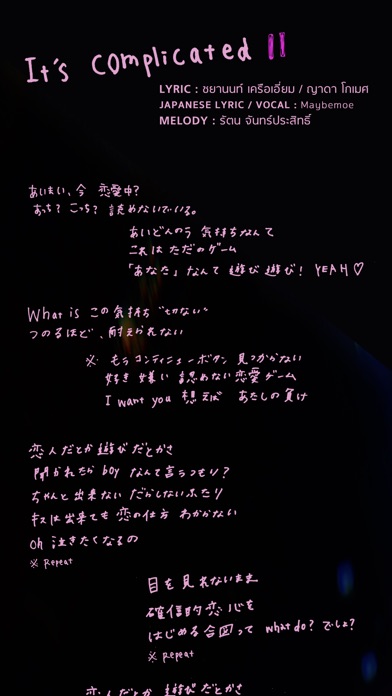 It's complicated
LYRIC : ชยานนท์ เครือเอี่ยม / ญาดา โกเมศ
JAPANESE LYRIC / VOCAL : Maybemoe
MELODY : รัตน จันทร์ประสิทธิ์
あいまい、今 恋愛中?
あっち? こっち? 読めないでいる。
あいどんのう 気持ちなんて
これは ただのゲーム
「あなた」なんて 遊び 遊び! YEAH♡
What is この気持ち "切ない"
つのるほど、耐えられない
※ もうコンティニューボタン 見つからない
好き 嫌い 認めない恋愛ゲーム
I want you 想えば あたしの負け
恋人だとか遊びだとかさ
聞かれたら boy なんて言うつもり?
ちゃんと出来ない だらしないふたり
キスは出来ても 恋の仕方 わからない
Oh 泣きたくなるの
※ Repeat
目を見れないまま
確信的恋心を
はじめる合図って what do? でしょ?
※ Repeat
恋人だとか遊びだとかさ